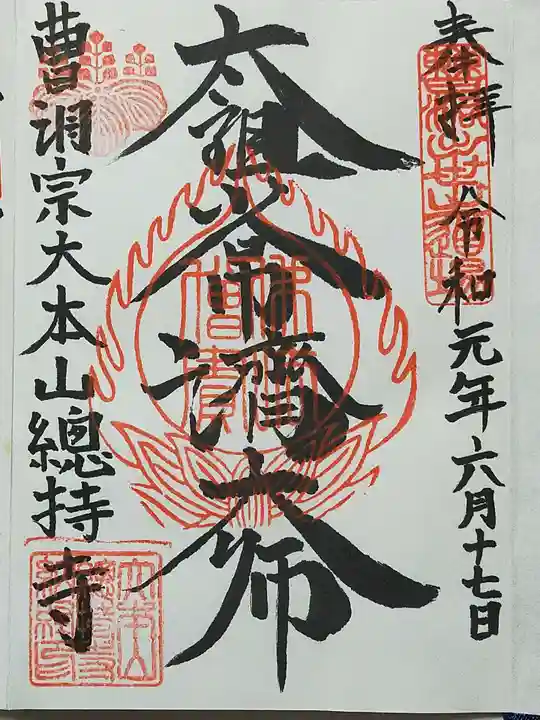 奉拝 令和元年六月十七日
太祖常済大師
曹洞宗大本山總持寺